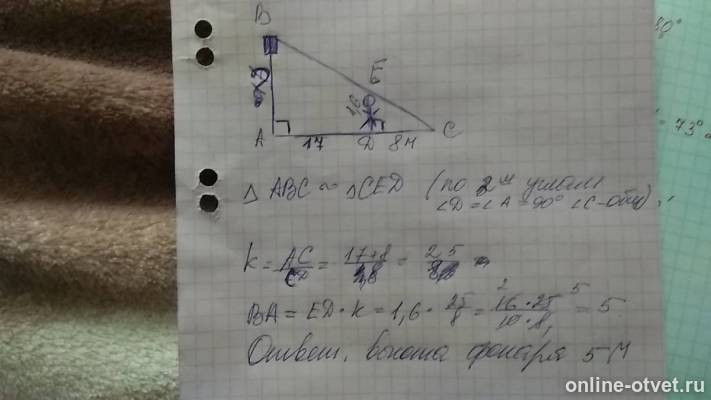 B
E
1,6
A 17 D 8м C
Δ ABC ~ ΔCED (по 2ум углам
∠D = ∠A = 90° ∠C - общ)
k = AC/CD = 17+8/8 = 25/8
BA = ED · k = 1,6 · 25/8 = 16·25/10·8 = 5
Ответ, высота фонаря 5 м
80°
= 73°
online-otvet.ru